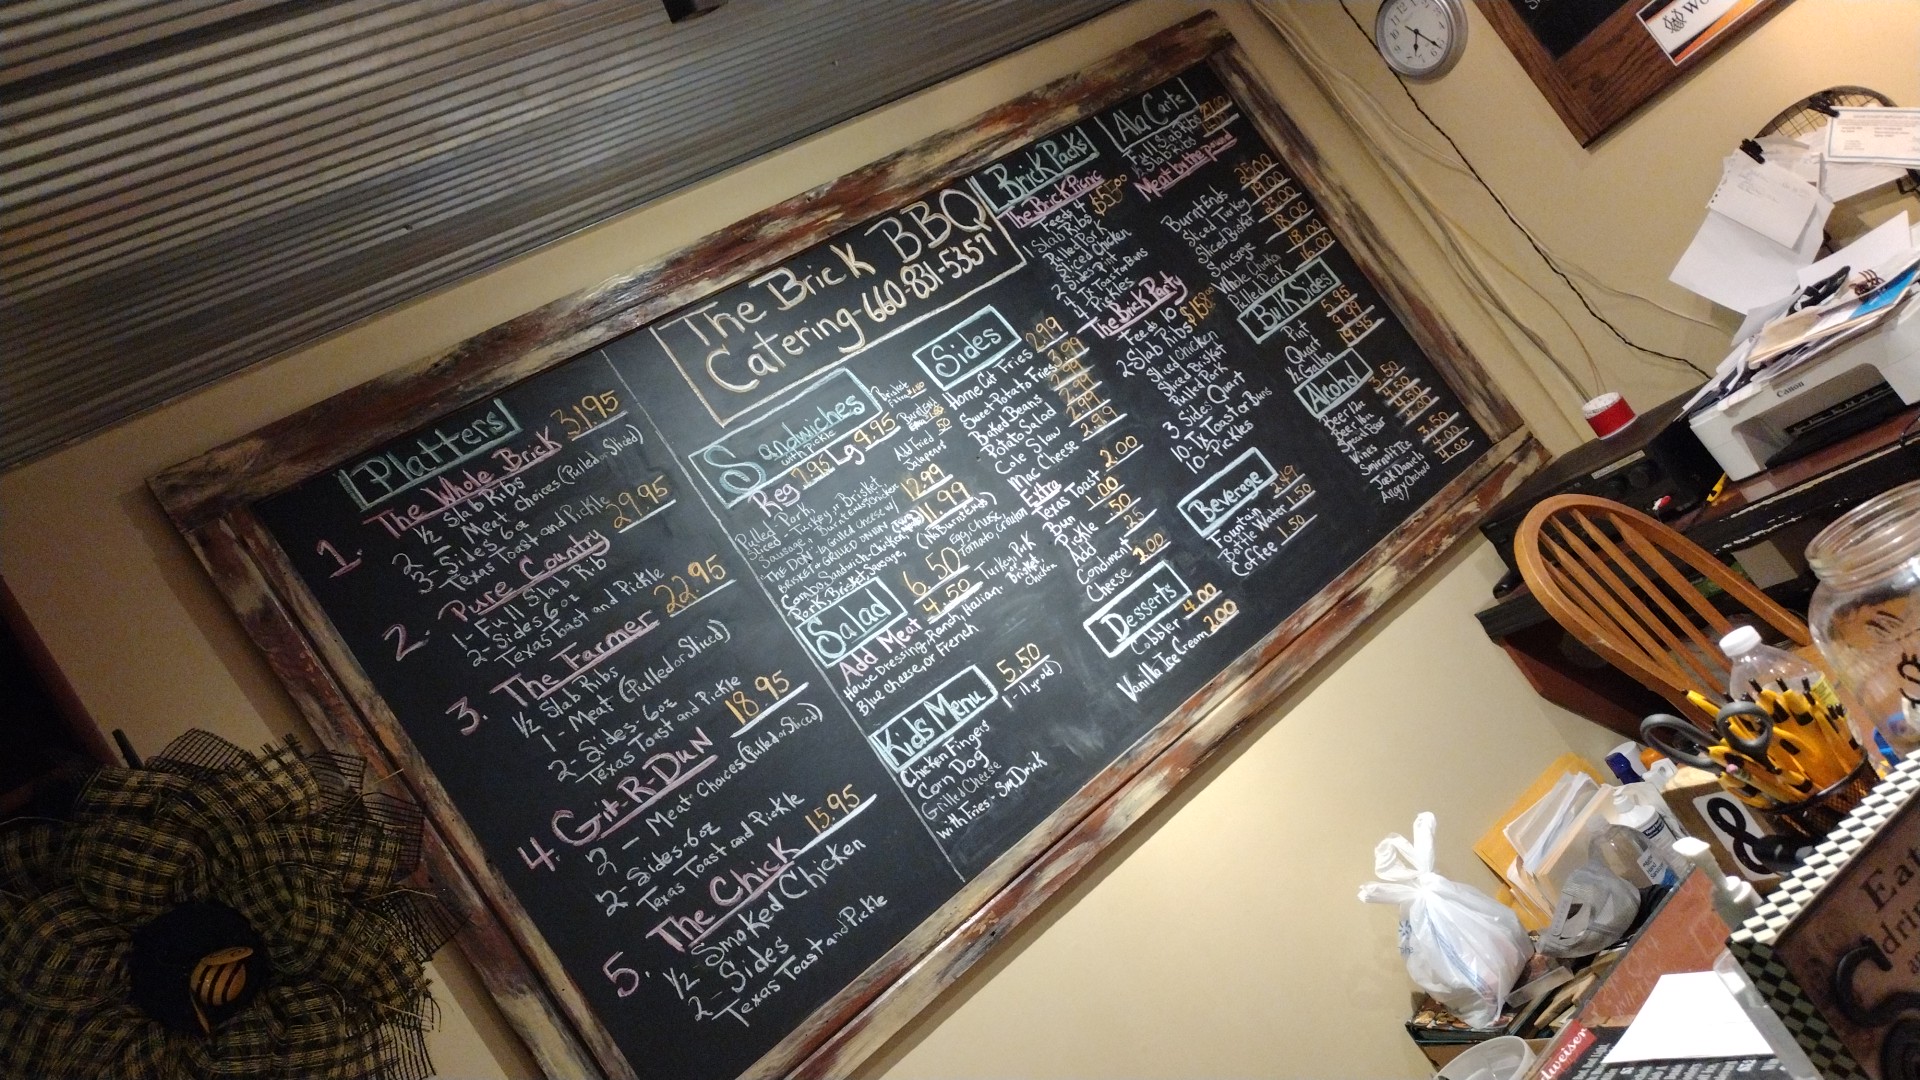 Platters
1. The Whole Brick 31.95
1/2 Slab Ribs
2 - Meat Choices (Pulled or Sliced)
3 - Sides 6oz
Texas Toast and Pickle
2. Pure Country 29.95
1 - Full Slab Rib
2 - Sides 6oz
Texas Toast and Pickle
3. The Farmer 22.95
1/2 Slab Ribs
1 - Meat (Pulled or Sliced)
2 - Sides - 6oz
Texas Toast and Pickle
4. Git-R-Dun 18.95
2 - Meat Choices (Pulled or Sliced)
2 - Sides - 6oz
Texas Toast and Pickle
5. The Chick 15.95
1/2 Smoked Chicken
2 - Sides
Texas Toast and Pickle
The Brick BBQ
Catering - 660-831-5357
Sandwiches
with Pickle
Brisket
Extra
Reg 7.95 Lg 9.95
Burnt End
Add Fried
Jalapenos .50
Pulled - Pork,
Sliced - Turkey, Brisket
Sausage, Burnt ends, Chicken
"THE DON" Grilled Cheese w/
BRISKET 12.99
Combo Sandwich - Chicken, 11.99
Pork, Brisket, Sausage, (No Burnt Ends)
Salad 6.50
Egg, Cheese,
Tomato, Crouton
Add Meat 4.50
Turkey, Pork
or Brisket
Chicken
House Dressing - Ranch, Italian -
Blue Cheese, or French
Kids Menu 5.50
(1 - 11 yr old)
Chicken Fingers
Corn Dog
Grilled Cheese
with Fries - Sm Drink
Sides
Home Cut Fries 2.99
Sweet Potato Fries 3.99
Baked Beans 2.99
Potato Salad 2.99
Cole Slaw 2.99
Mac Cheese 2.99
Extra
Texas Toast 2.00
Bun 1.00
Pickle .50
Add
Condiment .25
Cheese
Desserts
Cobbler 4.00
Vanilla Ice Cream 2.00
Brick Packs
The Brick Picnic
Feeds 4 $55.00
1 Slab Ribs
Pulled Pork
Sliced Chicken
2 Sides - Pint
4 - Tx Toast or Buns
4 - Pickles
The Brick Party
Feeds 10
2 - Slab Ribs
Sliced Chicken
Sliced Brisket
Pulled Pork
3 Sides Quart
10 - Tx Toast or Buns
10 - Pickles
Beverage
Fountain 2.49
Bottle Water 1.50
Coffee 1.50
Ala Carte
Full Slab Ribs
1/2 Slab Ribs
Meat by the pound
Burnt Ends
Sliced Turkey 19.00
Sliced Brisket
Sausage 18.00
Whole Chicken 18.00
Pulled Pork 16.00
Bulk Sides
Pint 5.95
Quart 9.95
1/2 Gallon 19.95
Alcohol
Beer Dom
Beer Ultra
Special Beer
Wines
Smirnoff Ice 3.50
Jack Daniels 4.00
Angry Orchard 4.00
Canon
Eat
drin